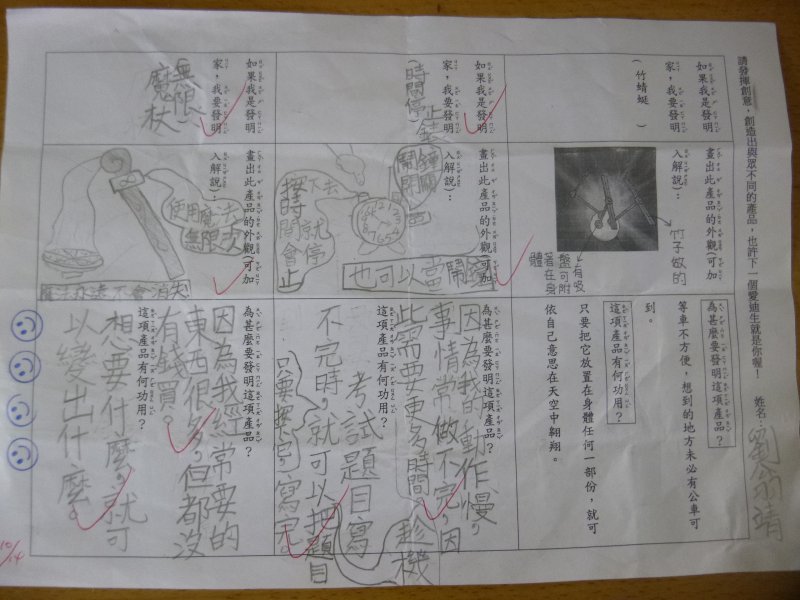 請發揮創意，創造出與眾不同的產品，也許下一個愛迪生就是你喔！
姓名：劉
如果我是發明
家，我要發明
（竹蜻蜓）
畫出此產品的外觀（可加
入解說）：
竹子做的
有吸
盤可附
著在身
體
為甚麼要發明這項產品？
等車不方便，想到的地方未必有公車可
到。
這項產品有何功用？
只要把它放置在身體任何一部份，就可
依自己意思在天空中翱翔。
如果我是發明
家，我要發明
（時間停止鐘）
畫出此產品的外觀（可加
入解說）：
鬧鐘
開關
按下去
時就
間停
會止
也可以當鬧鐘
為甚麼要發明這項產品？
因為我的動作慢，
事情常做不完，因
此需要更多時間。
這項產品有何功用？
考試題目寫
不完時，就可以把題目
趁機
只要把它寫完。
如果我是發明
家，我要發明
（無限
魔杖
畫出此產品的外觀（可加
入解說）：
使用魔法
無限次
魔法永遠不會消失
為甚麼要發明這項產品？
這項產品有何功用？
因為我經常要的
東西很多，但都沒
有錢買。
想要什麼，就可
以變出什麼。
10/14